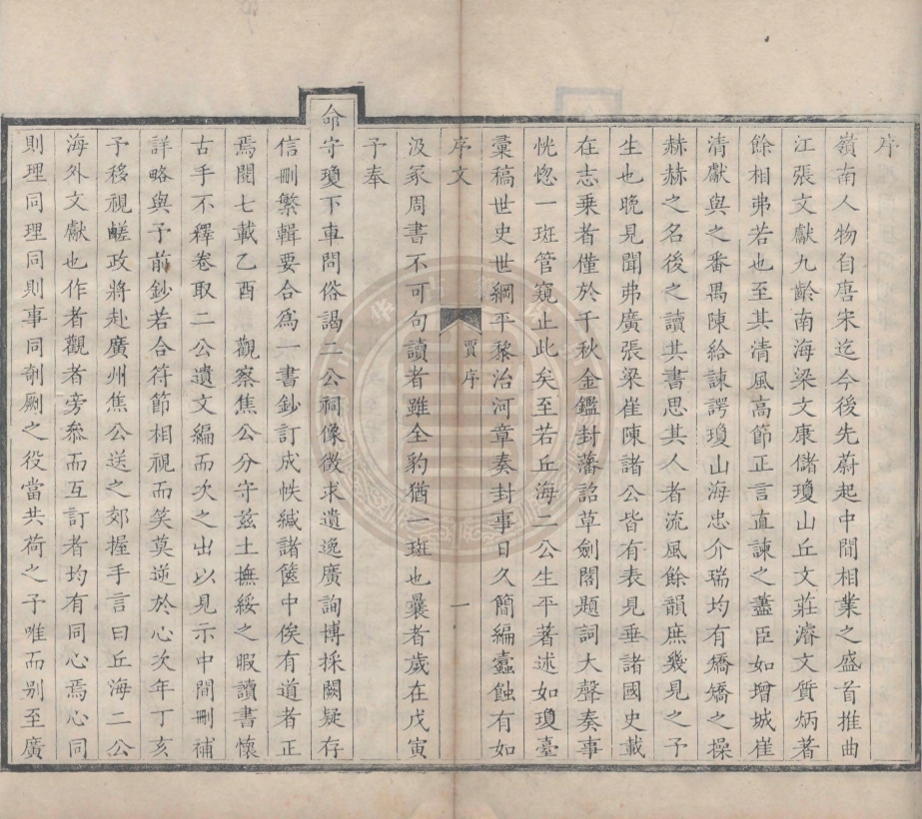 序
嶺南人物自唐宋迄今後先蔚起中間相業之盛首推曲
江張文獻九齡南海梁文康儲瓊山丘文莊濬文質炳著
餘相弗若也至其清風高節正言直諫之藎臣如增城崔
清獻與之番禺陳給諫諤瓊山海忠介瑞均有矯矯之操
赫赫之名後之讀其書思其人者流風餘韻庶幾見之予
生也晩見聞弗廣張梁崔陳諸公皆有表見垂諸國史載
在志乗者僅於千秋金鑑封藩詔草劍閣題詞大聲奏事
恍惚一斑管窺止此矣至若丘海二公生平著述如瓊臺
彚稿世史世綱平黎治河章奏封事日久簡編蠧蝕有如
序文
賈序
一
汲冢周書不可句讀者雖全豹猶一斑也曩者歲在戊寅
予奉
命守瓊下車問俗謁二公祠像徴求遺逸廣詢博採闕疑存
信刪繁輯要合爲一書鈔訂成帙緘諸篋中俟有道者正
焉閱七載乙酉 觀察焦公分守兹土撫綏之暇讀書懷
古手不釋卷取二公遺文編而次之出以見示中間刪補
詳略與予前鈔若合符節相視而笑莫逆於心次年丁亥
予移視鹺政將赴廣州焦公送之郊握手言曰丘海二公
海外文獻也作者觀者旁叅而互訂者均有同心焉心同
則理同理同則事同剞劂之役當共荷之予唯而别至廣